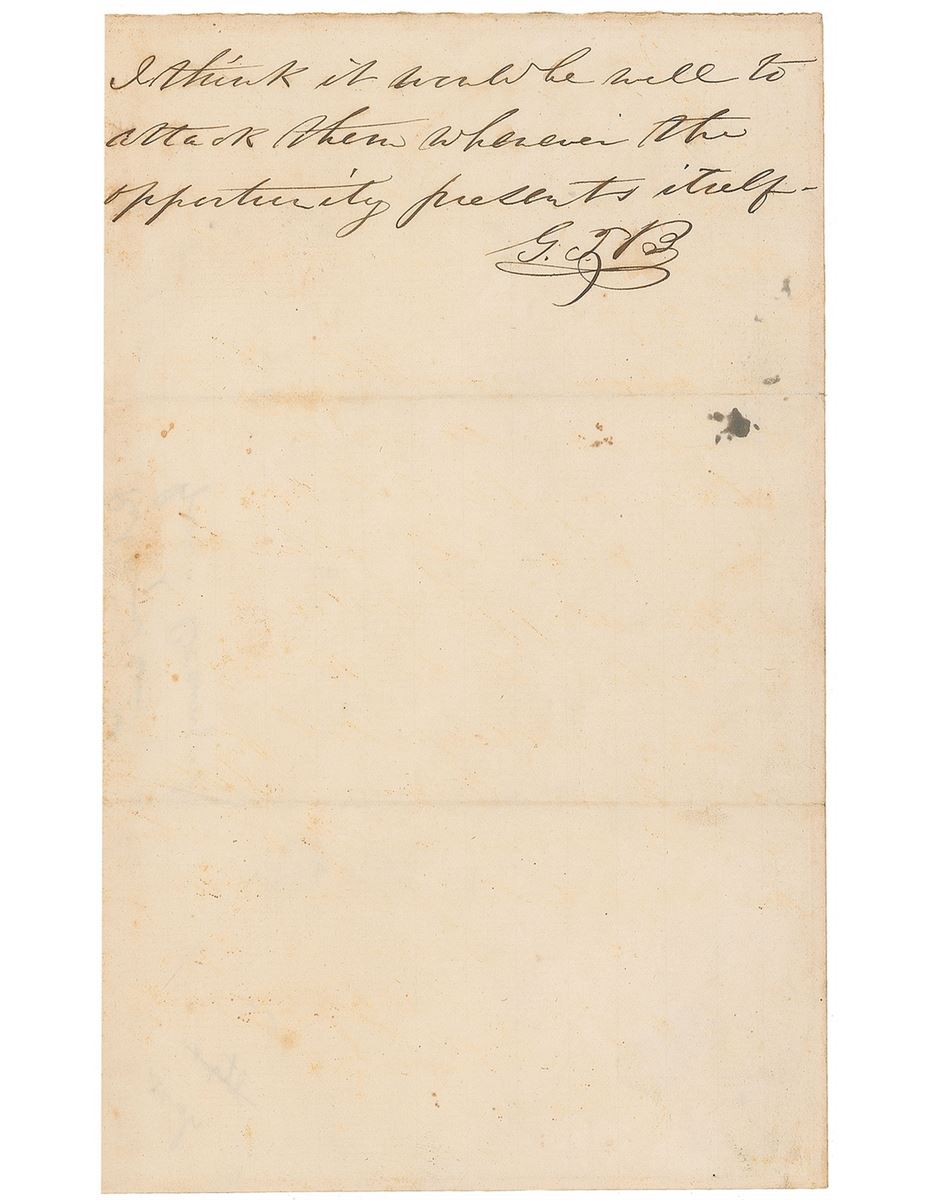 I think it would be well to
attack them whenever the
opportunity presents itself-
G.T.B